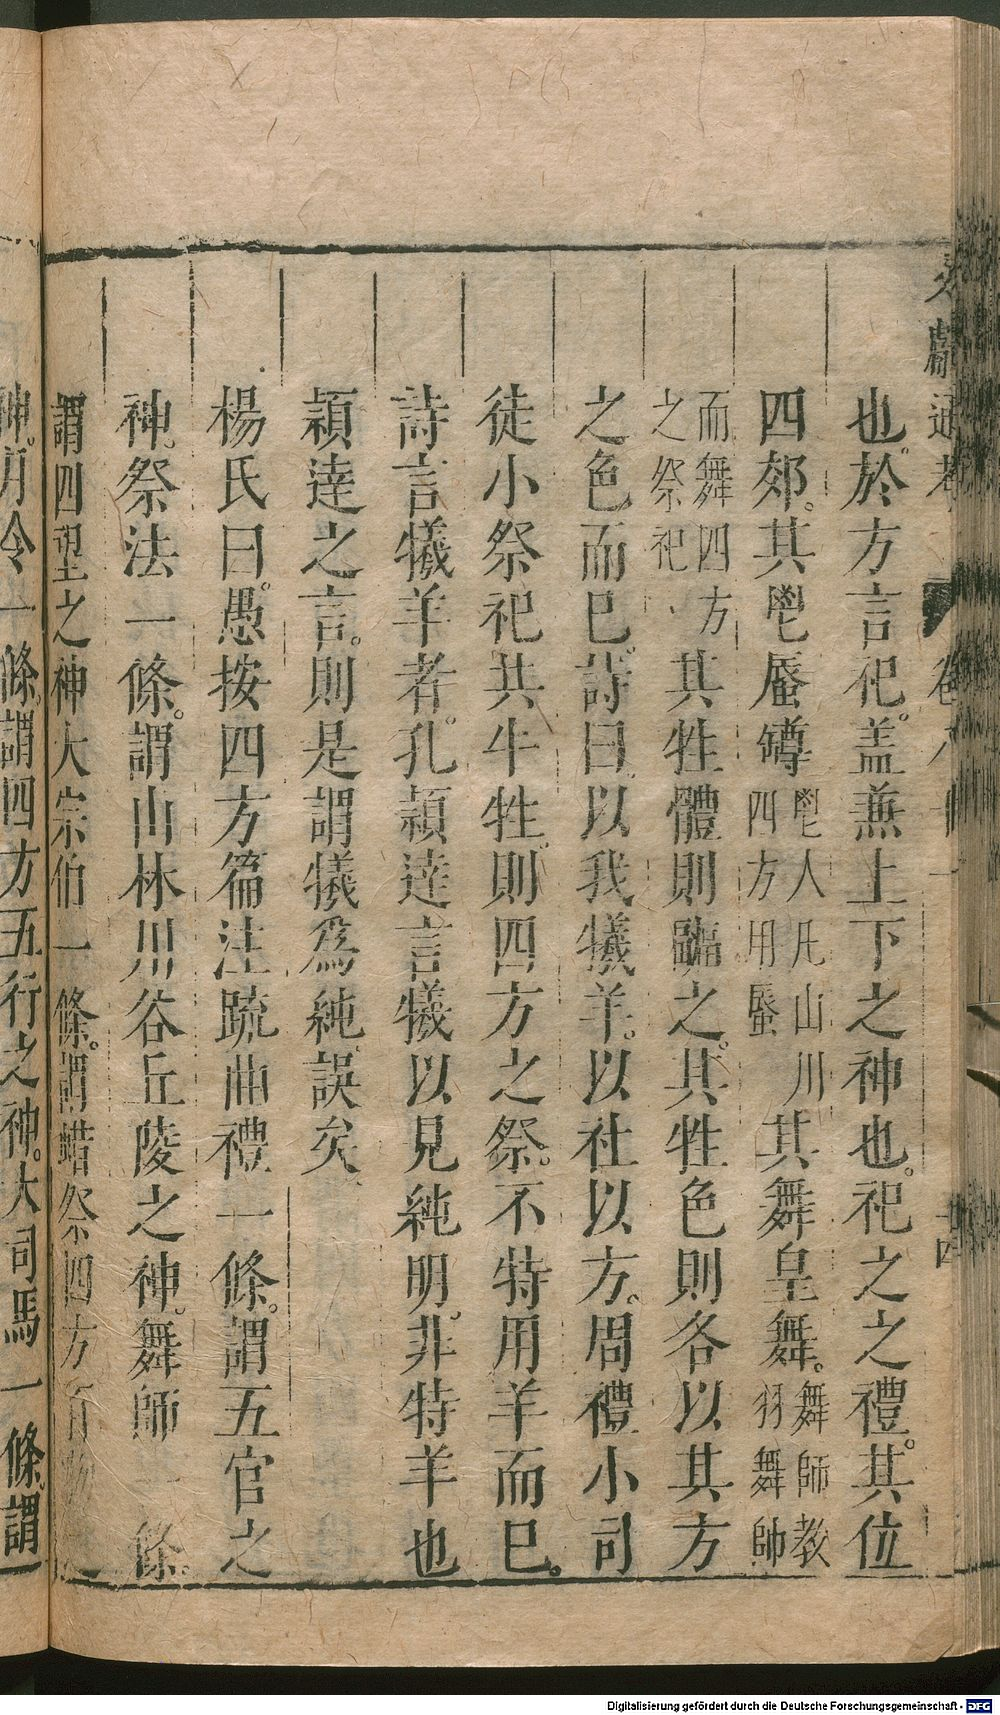 文獻通考 卷八十一 十四
也。於方言祀。盖蕪上下之神也。祀之之禮。其位
四郊。其鬯蜃罇鬯人凡山川四方用蜃其舞皇舞。舞師教羽舞帥
而舞四方之祭祀其牲體則疈之。其牲色則各以其方
之色而巳。詩曰以我犧羊。以社以方。周禮小司
徒小祭祀共牛牲則四方之祭。不特用羊而巳。
詩言犧羊者。孔頴逹言犧以見純明。非特羊也
頴逹之言。則是謂犧爲純誤矣
楊氏曰。愚按四方篇注䟽曲禮一條。謂五官之
神。祭法一條。謂山林川谷丘陵之神。舞師一條。
謂四望之神大宗伯一條。謂蜡祭四方百物之
神。月令一條。謂四方五行之神。大司馬一條。謂
Digitalisierung gefördert durch die Deutsche Forschungsgemeinschaft - DFG